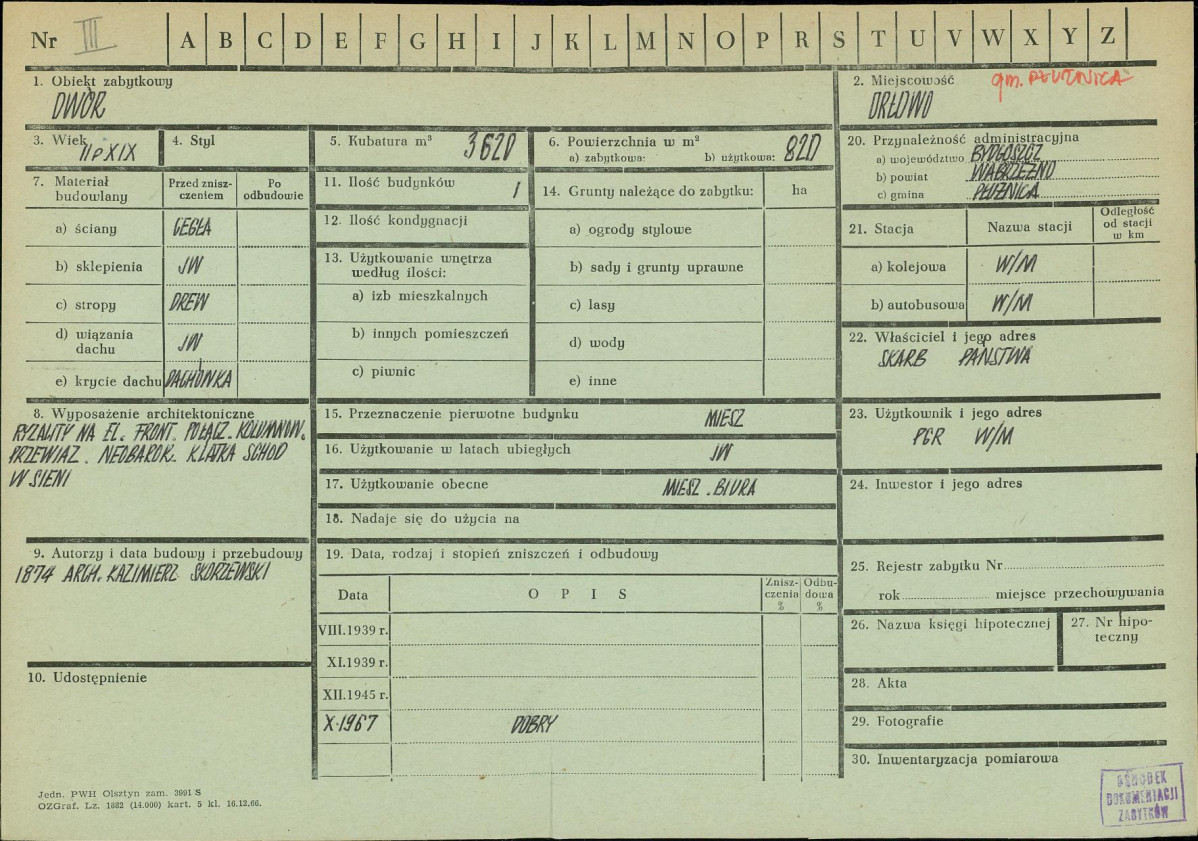 Nr III A B C D E F G H I J K L M N O P R S T U V W X Y Z
1. Obiekt zabytkowy
DWÓR
2. Miejscowość gm. PŁUŻNICA
ORŁOWO
3. Wiek II p XIX
4. Styl
5. Kubatura m³ 3620
6. Powierzchnia w m²
a) zabytkowa: b) użytkowa: 820
7. Materiał budowlany
Przed znisz-
czeniem
Po
odbudowie
a) ściany CEGŁA
b) sklepienia JW
c) stropy DREW
d) wiązania
dachu JW
e) krycie dachu DACHÓWKA
8. Wyposażenie architektoniczne
RYZALITY NA EL. FRONT. POŁĄCZ. KOLUMNOW.
PRZEWIĄZ. NEOBAROK. KLATKA SCHOD
W SIENI
9. Autorzy i data budowy i przebudowy
1874 ARCH. KAZIMIERZ SKÓRZEWSKI
10. Udostępnienie
11. Ilość budynków 1
12. Ilość kondygnacji
13. Użytkowanie wnętrza
według ilości:
a) izb mieszkalnych
b) innych pomieszczeń
c) piwnic
14. Grunty należące do zabytku: ha
a) ogrody stylowe
b) sady i grunty uprawne
c) lasy
d) wody
e) inne
15. Przeznaczenie pierwotne budynku MIESZ
16. Użytkowanie w latach ubiegłych JW
17. Użytkowanie obecne MIESZ. BIURA
18. Nadaje się do użycia na
19. Data, rodzaj i stopień zniszczeń i odbudowy
Data OPIS
Znisz-
czenia
%
Odbu-
dowa
%
VIII.1939 r.
XI.1939 r.
XII.1945 r.
X.1967 DOBRY
20. Przynależność administracyjna
a) województwo BYDGOSZCZ
b) powiat WĄBRZEŹNO
c) gmina PŁUŻNICA
21. Stacja Nazwa stacji
Odległość
od stacji
w km
a) kolejowa W/M
b) autobusowa W/M
22. Właściciel i jego adres
SKARB PAŃSTWA
23. Użytkownik i jego adres
PGR W/M
24. Inwestor i jego adres
25. Rejestr zabytku Nr
rok miejsce przechowywania
26. Nazwa księgi hipotecznej
27. Nr hipo-
teczny
28. Akta
29. Fotografie
30. Inwentaryzacja pomiarowa
Jedn. PWH Olsztyn zam. 3991 S
OZGraf. Lz. 1882 (14.000) kart. 5 kl. 16.12.66.
OŚRODEK
DOKUMENTACJI
ZABYTKÓW